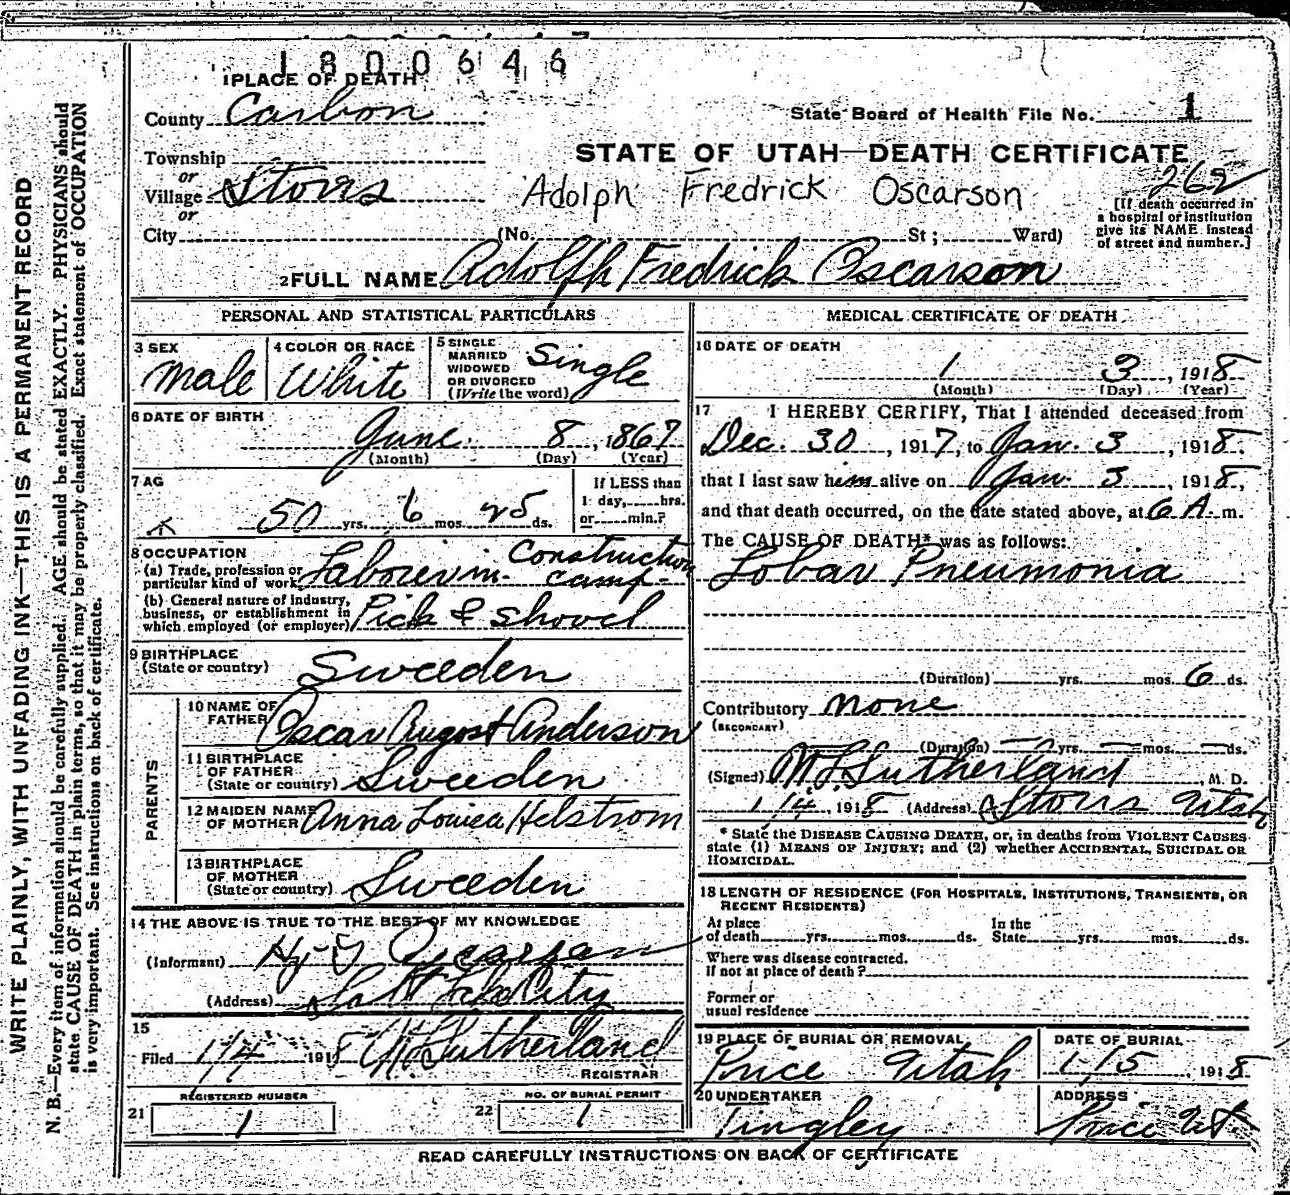 1800646
1 PLACE OF DEATH
County Carbon
State Board of Health File No. 1
Township
or
Village Storrs
or
City (No. St; Ward)
STATE OF UTAH—DEATH CERTIFICATE
262
Adolph Fredrick Oscarson
[If death occurred in
a hospital or institution
give its NAME instead
of street and number.]
2 FULL NAME Adolph Fredrick Oscarson
PERSONAL AND STATISTICAL PARTICULARS
3 SEX
Male
4 COLOR OR RACE
White
5 SINGLE
MARRIED
WIDOWED
OR DIVORCED
(Write the word)
Single
6 DATE OF BIRTH
June 8, 1867
(Month) (Day) (Year)
7 AG
50 yrs. 6 mos. 25 ds.
If LESS than
1 day, hrs.
or min.?
8 OCCUPATION
(a) Trade, profession or
particular kind of work
Laborer in Construction
camp
(b) General nature of industry,
business, or establishment in
which employed (or employer)
Pick & Shovel
9 BIRTHPLACE
(State or country)
Sweeden
PARENTS
10 NAME OF
FATHER
Oscar August Anderson
11 BIRTHPLACE
OF FATHER
(State or country)
Sweeden
12 MAIDEN NAME
OF MOTHER
Anna Louiea Helstrom
13 BIRTHPLACE
OF MOTHER
(State or country)
Sweeden
14 THE ABOVE IS TRUE TO THE BEST OF MY KNOWLEDGE
(Informant) Oscarson
(Address) Salt Lake City
15
Filed 1/4 1918 Sutherland
REGISTRAR
REGISTERED NUMBER
21 1
NO. OF BURIAL PERMIT
22 1
MEDICAL CERTIFICATE OF DEATH
16 DATE OF DEATH
1 3, 1918
(Month) (Day) (Year)
17 I HEREBY CERTIFY, That I attended deceased from
Dec. 30, 1917, to Jan. 3, 1918.
that I last saw him alive on Jan. 3, 1918,
and that death occurred, on the date stated above, at 6 A. m.
The CAUSE OF DEATH* was as follows:
Lobar Pneumonia
(Duration) yrs. mos. 6 ds.
Contributory none
(SECONDARY)
(Duration) — yrs. — mos. — ds.
(Signed) Sutherland, M. D.
1/4, 1918 (Address) Storrs Utah
* State the DISEASE CAUSING DEATH, or, in deaths from VIOLENT CAUSES
state (1) MEANS OF INJURY; and (2) whether ACCIDENTAL, SUICIDAL OR
HOMICIDAL.
18 LENGTH OF RESIDENCE (FOR HOSPITALS, INSTITUTIONS, TRANSIENTS, OR
RECENT RESIDENTS)
At place
of death yrs. mos. ds.
In the
State yrs. mos. ds.
Where was disease contracted.
if not at place of death?
Former or
usual residence
19 PLACE OF BURIAL OR REMOVAL
Price Utah
DATE OF BURIAL
1/5, 1918
20 UNDERTAKER
Tingley
ADDRESS
Price Ut.
READ CAREFULLY INSTRUCTIONS ON BACK OF CERTIFICATE
WRITE PLAINLY, WITH UNFADING INK—THIS IS A PERMANENT RECORD
N. B.—Every item of information should be carefully supplied. AGE should be stated EXACTLY. PHYSICIANS should
state CAUSE OF DEATH in plain terms, so that it may be properly classified. Exact statement of OCCUPATION
is very important. See instructions on back of certificate.